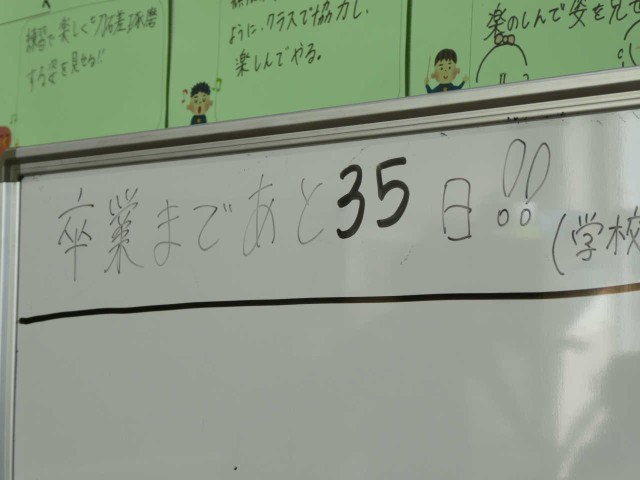 練習で楽しく切磋琢磨
する姿を見せる!!
ように、クラスで協力し、
楽しんでやる。
楽のしんで姿を見せ
卒業まであと35日!!
(学校